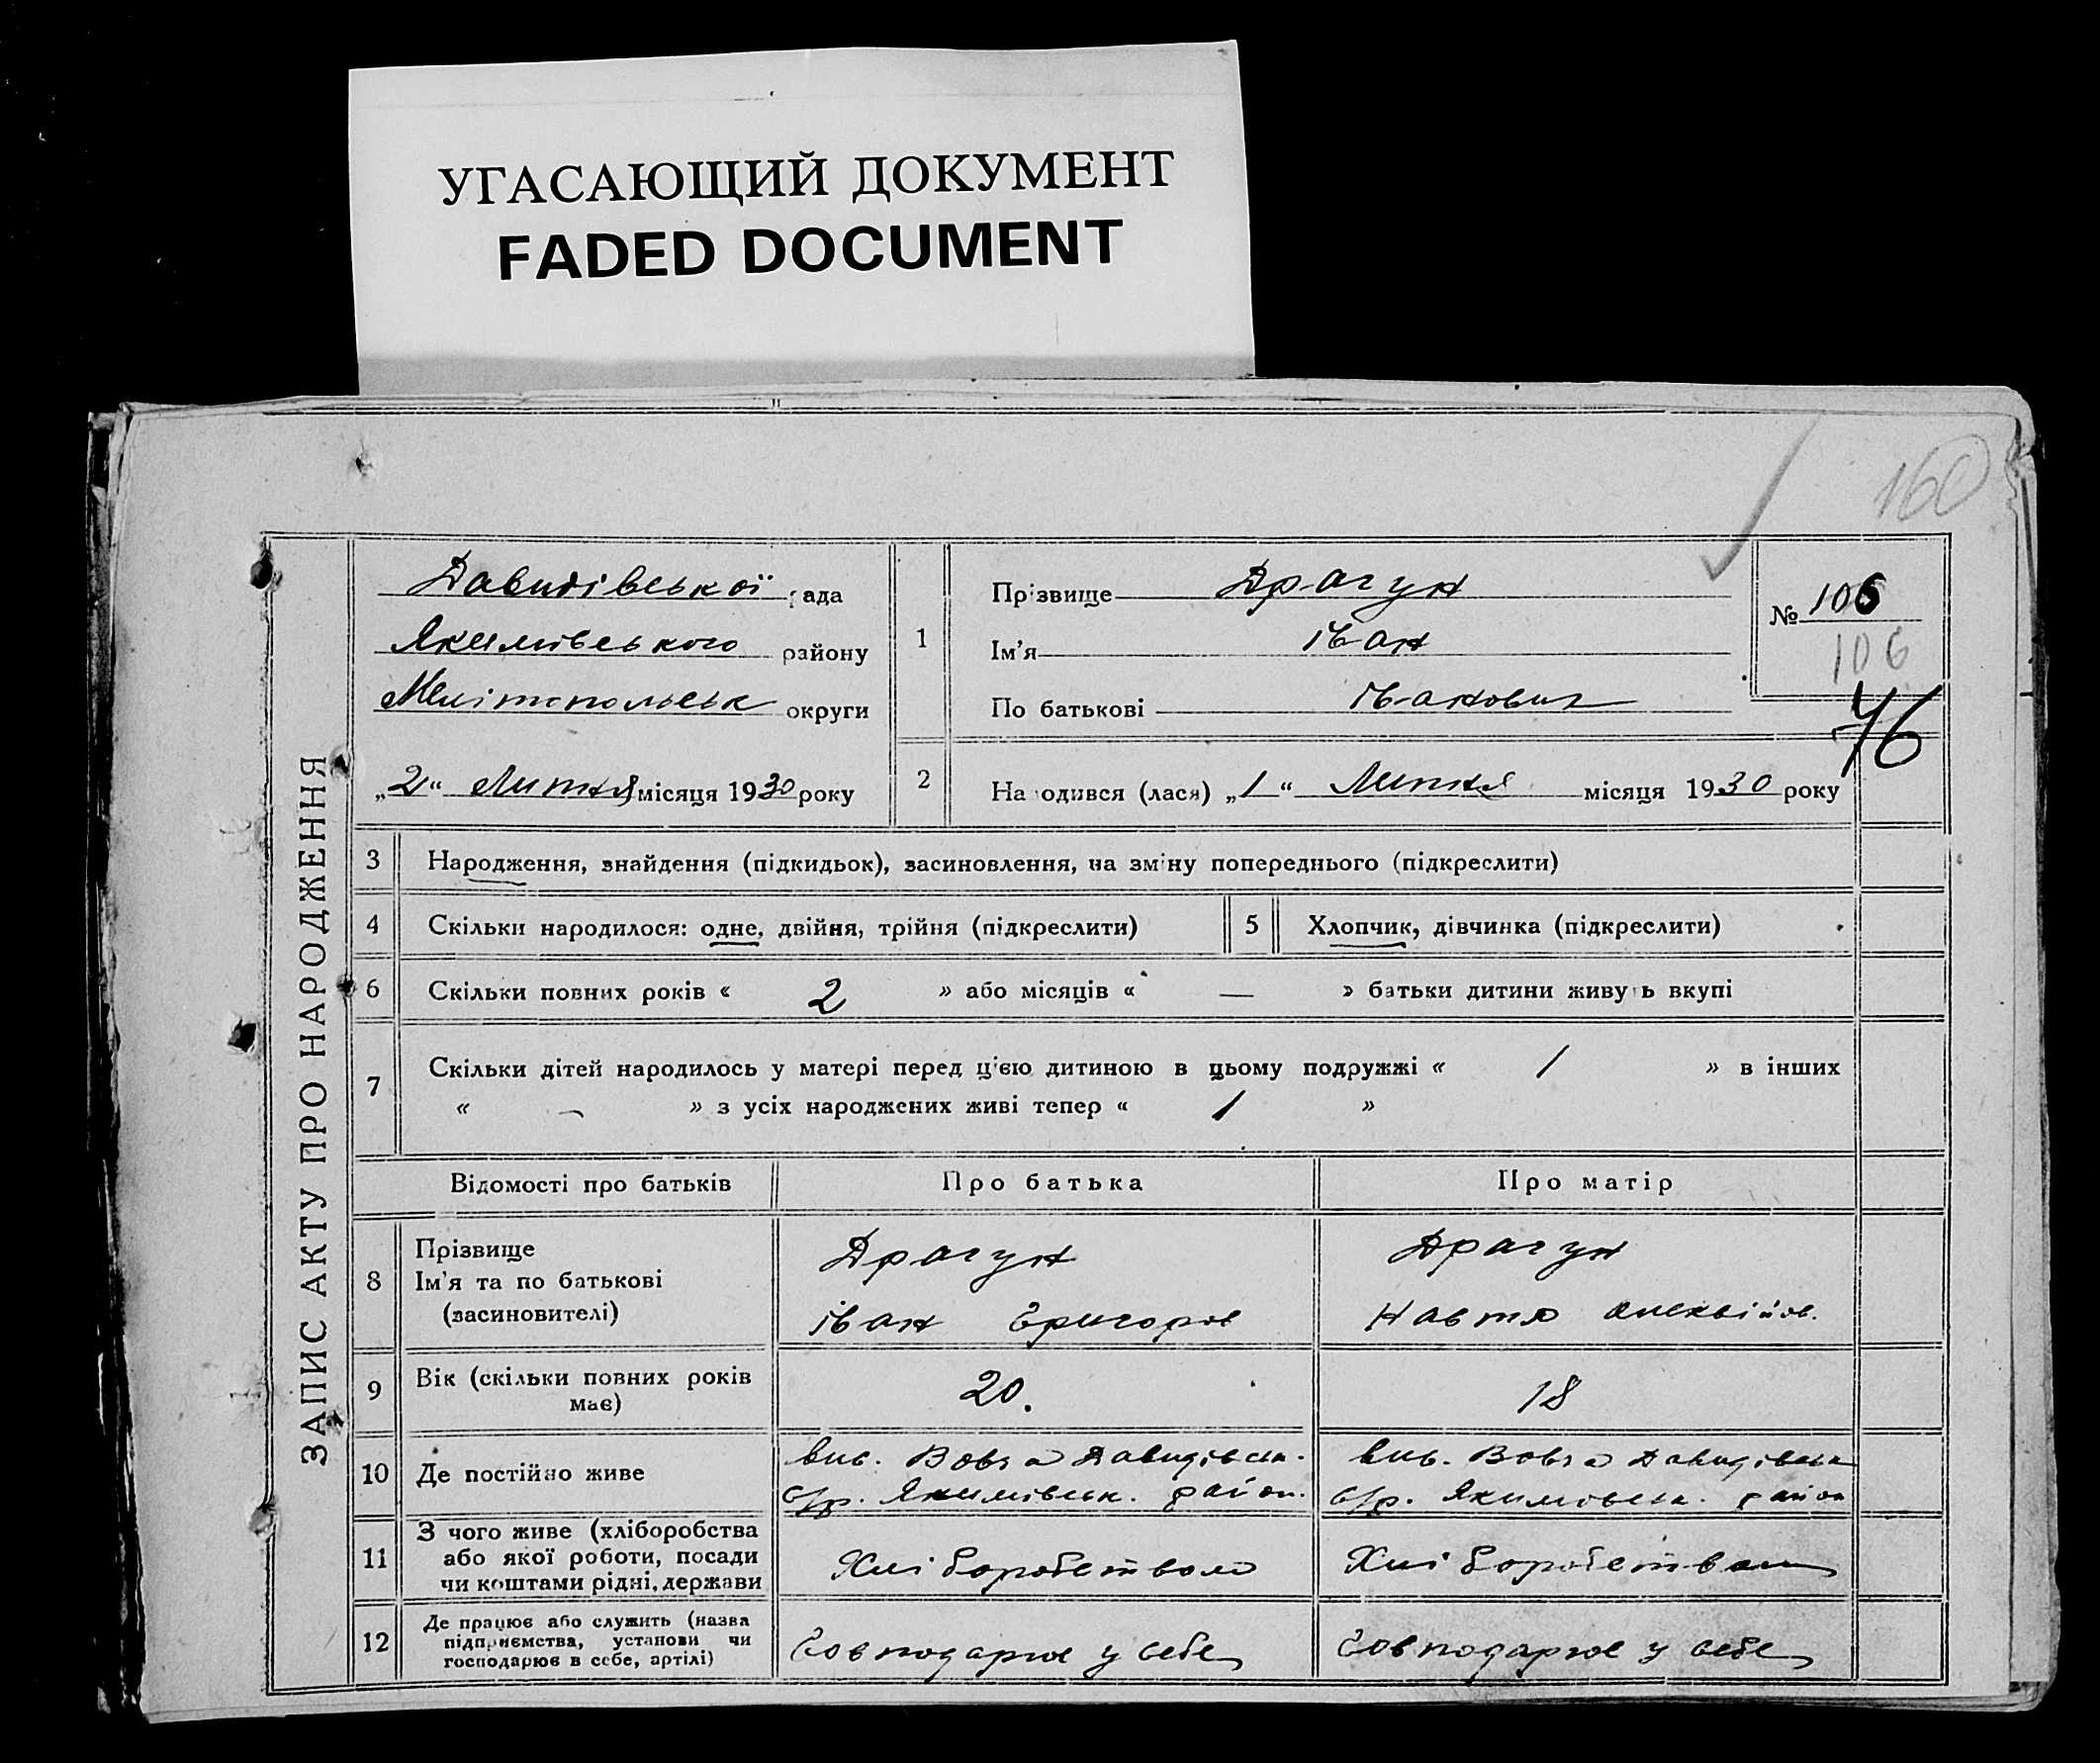 УГАСАЮЩИЙ ДОКУМЕНТ
FADED DOCUMENT
160
ЗАПИС АКТУ ПРО НАРОДЖЕННЯ
Давидівської рада
Якимівського району
Мелітопольськ округи
„2“ Липня місяця 1930 року
1
Прізвище Драгун
Ім'я Іван
По батькові Іванович
№ 106
106
76
2 Народився (лася) „1“ Липня місяця 1930 року
3 Народження, знайдення (підкидьок), засиновлення, на зміну попереднього (підкреслити)
4 Скільки народилося: одне, двійня, трійня (підкреслити) 5 Хлопчик, дівчинка (підкреслити)
6 Скільки повних років « 2 » або місяців « — » батьки дитини живуть вкупі
7 Скільки дітей народилось у матері перед цією дитиною в цьому подружжі « 1 » в інших
« – » з усіх народжених живі тепер « 1 »
Відомості про батьків Про батька Про матір
8
Прізвище Драгун Драгун
Ім'я та по батькові
(засиновителі) Іван Григоров
9 Вік (скільки повних років 20. 18
має)
10 Де постійно живе
вис. Вовча Давидівськ. вис. Вовча Давидівськ
с/р. Якимівськ. район. с/р. Якимівськ. район
11 З чого живе (хліборобства
або якої роботи, посади Хліборобством Хліборобством
чи коштами рідні, держави
12 Де працює або служить (назва
підприємства, установи чи Господарює у себе Господарює у себе
господарює в себе, артілі)